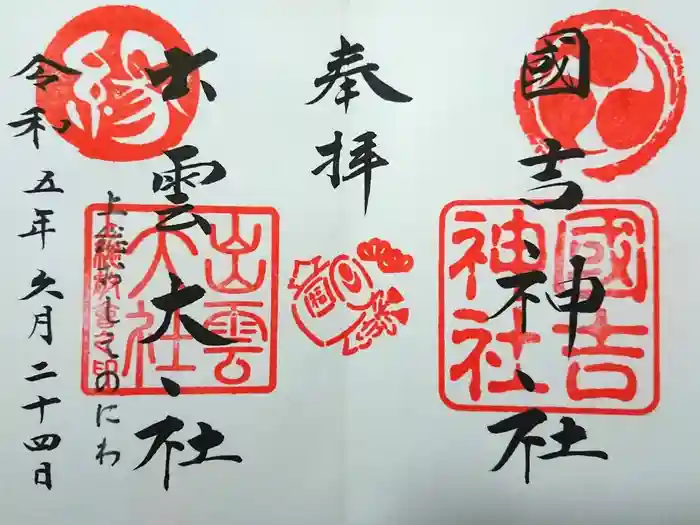 國吉神社
國吉
神社
奉拝
福
出雲大社
縁
出雲
大社
令和五年六月二十四日